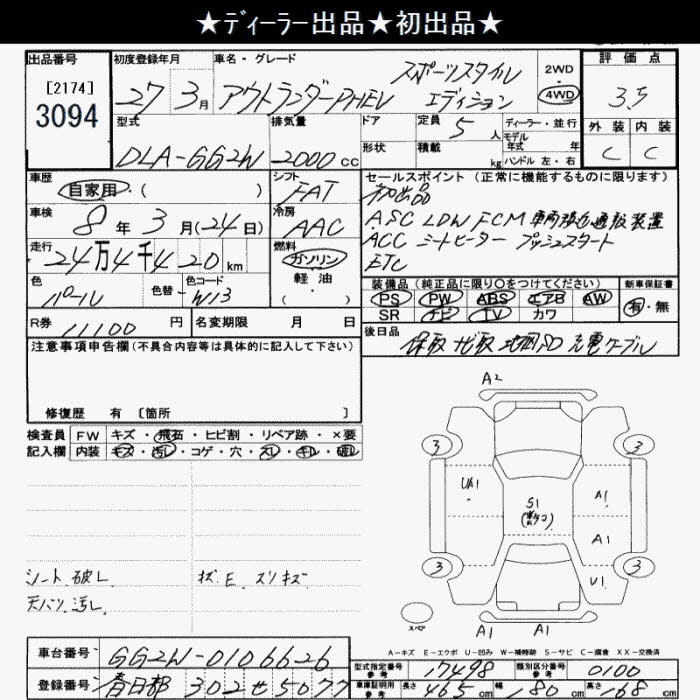 ★ディーラー出品★初出品★
出品番号 初度登録年月 車名・グレード 評価点
[2174]
3094
27 3月 アウトランダーPHEV スポーツスタイルエディション 2WD 4WD 3.5
型式 排気量 ドア 定員 5人 ディーラー・並行 外装 内装
モデル年式 年式
DLA-GG2W 2000cc 形状 積載 kg ハンドル 左・右 C C
車歴 シフト セールスポイント(正常に機能するものに限ります)
自家用・( ) FAT 初出品
車検 冷房 ASC LDW FCM 車両接近通報装置
8年3月(24日) AAC ACC シートヒーター プッシュスタート
走行 燃料 ETC
24万4千420km ガソリン
色 色替 色コード 軽油 装備品(純正品に限り○をつけてください) 新車保証書
パール W13 ( ) PS PW ABS エアB AW 有・無
SR ナビ TV カワ
R券 11100円 名変期限 月 日 後日品
保取 ナビ取 地図SD 充電ケーブル
注意事項申告欄(不具合内容等は具体的に記入して下さい)
修復歴 有 〔箇所 〕
検査員 FW キズ・飛石・ヒビ割・リペア跡・×要
記入欄 内装 キズ・汚レ・コゲ・穴・スレ・キレ・破レ
シート破レ 状E.スリキズ
天バリ汚レ
A2
3 3
UA1 S1 A1
A1
3 3
U1
スペア A1 A1
A-キズ E-エクボ U-凹み W-補修跡 S-サビ C-腐食 XX-交換済
車台番号 GG2W-0106626
登録番号 春日部 302 せ 5077
型式指定番号 参考 17498 類別区分番号 参考 0100
車庫証明用 参考 長さ 465cm 幅 180cm 高さ 168cm